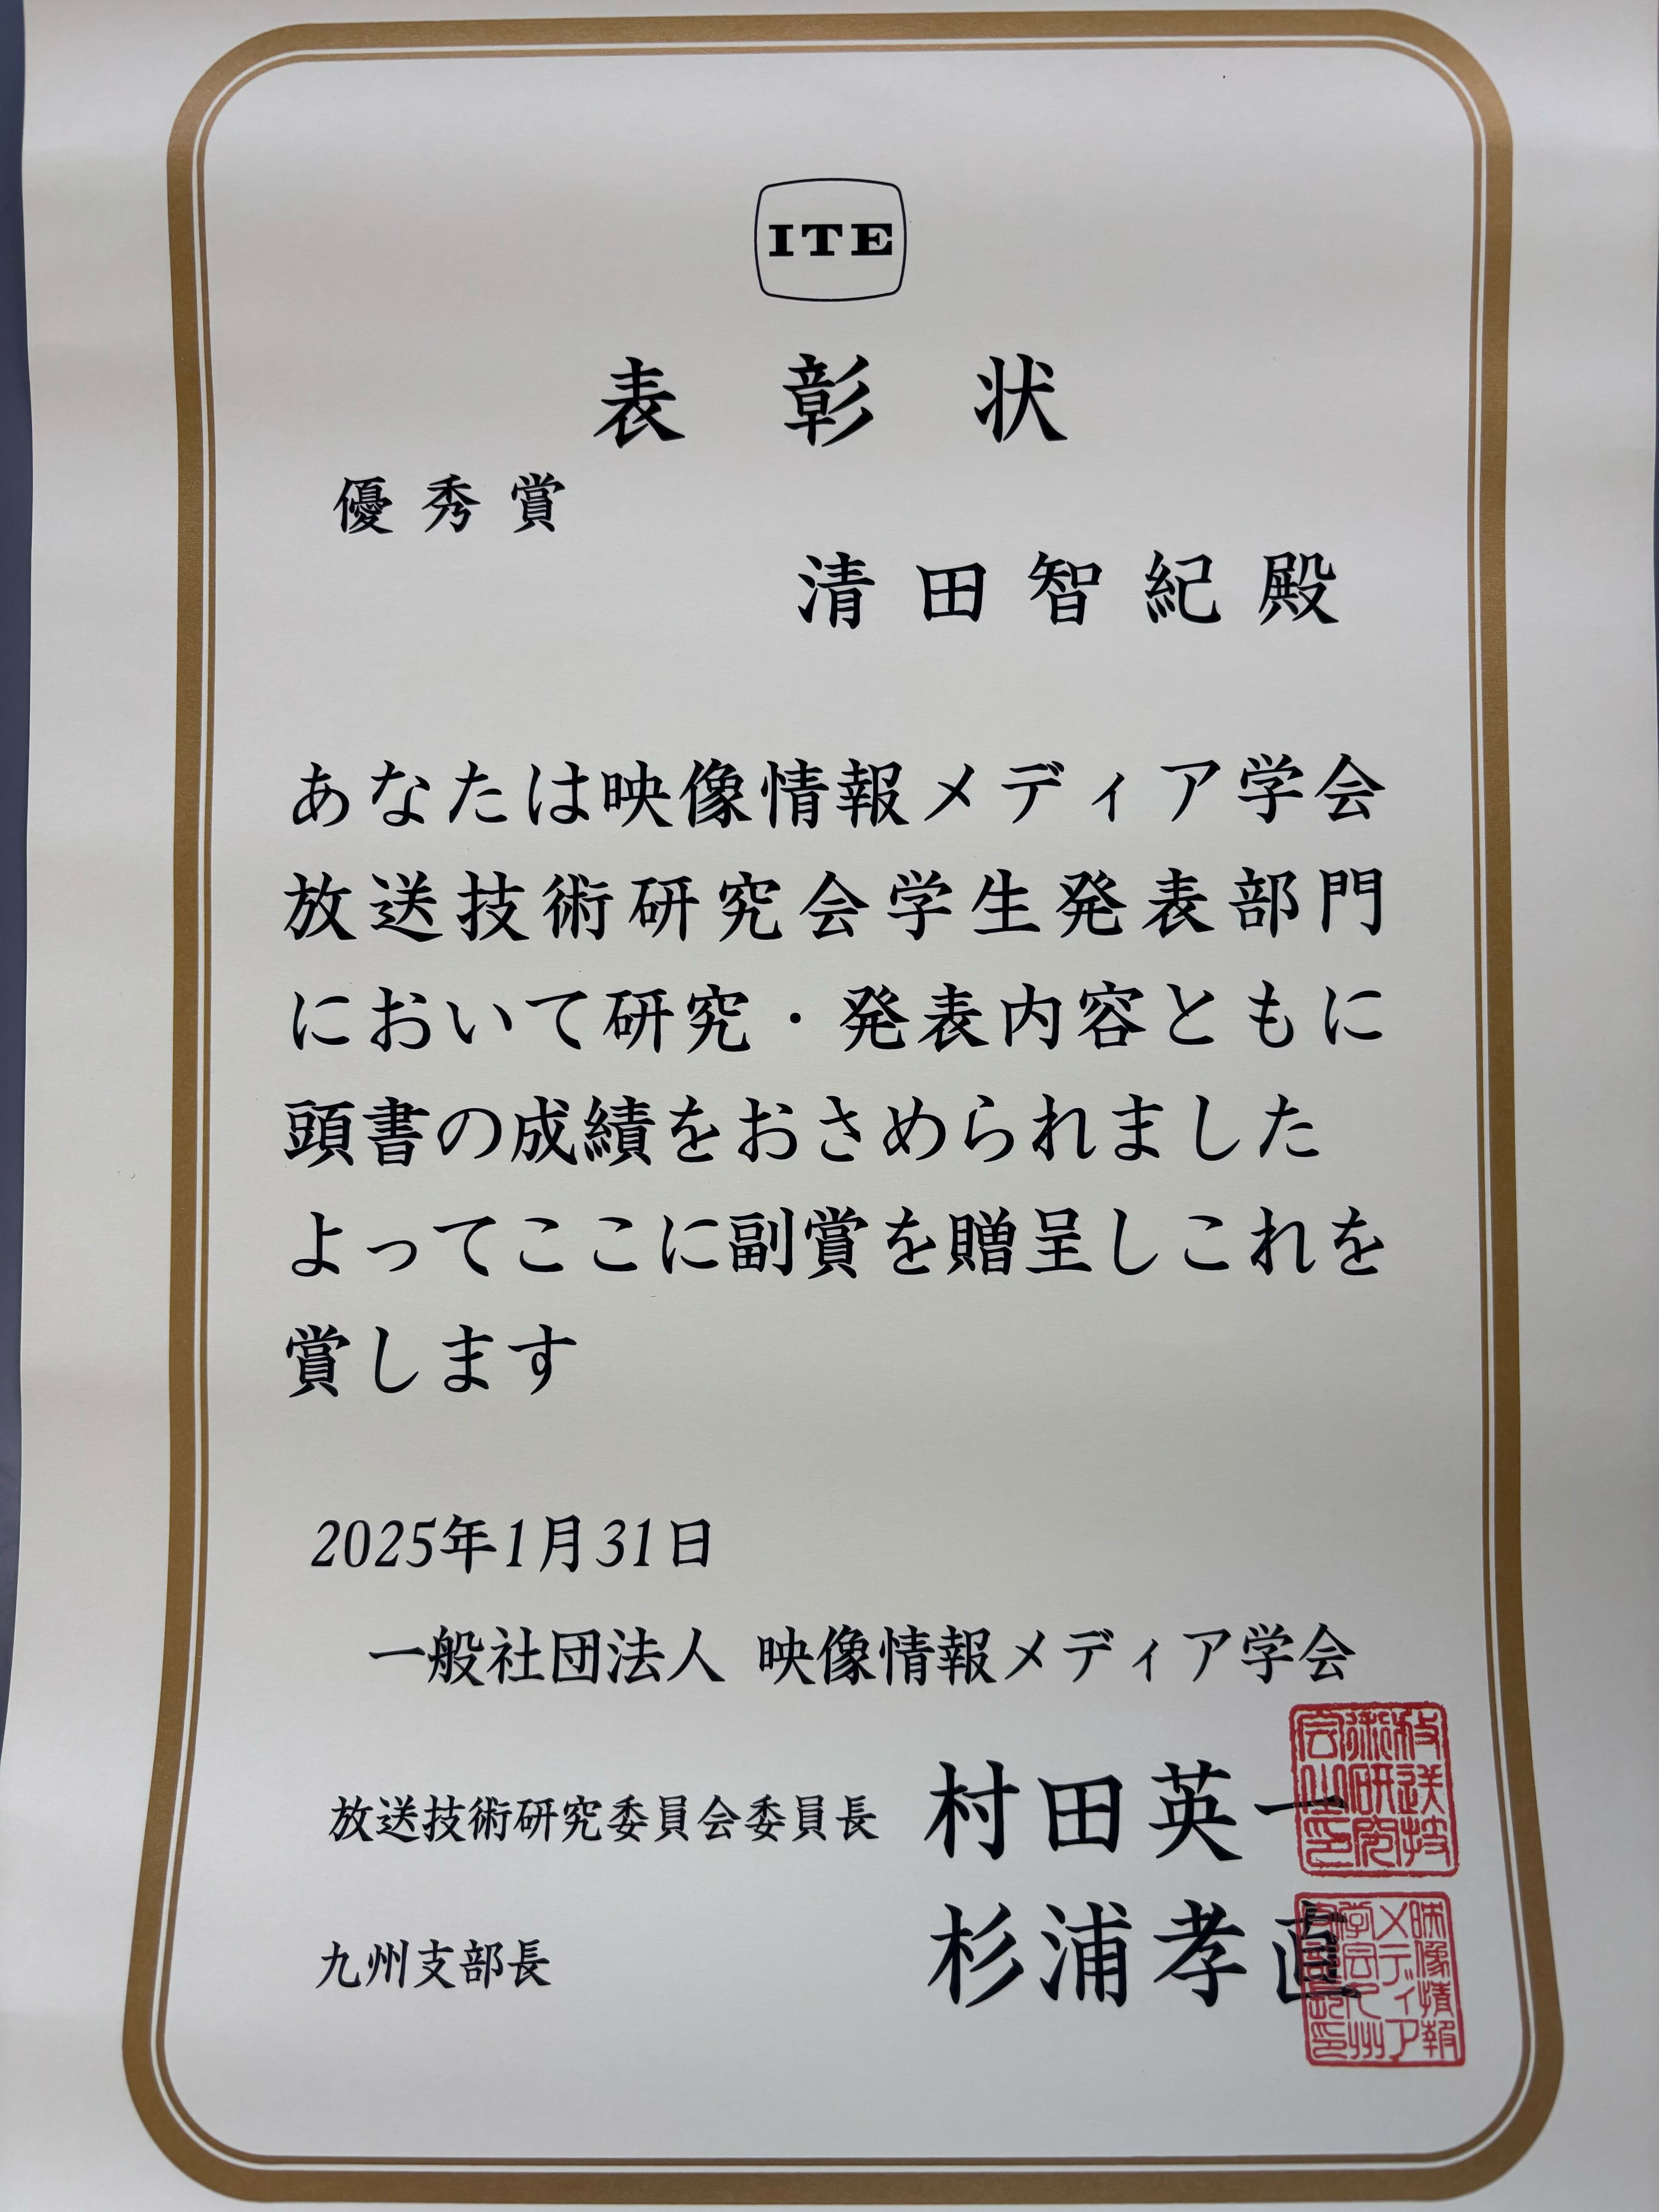 ITE
表彰状
優秀賞
清田智紀殿
あなたは映像情報メディア学会
放送技術研究会学生発表部門
において研究・発表内容ともに
頭書の成績をおさめられました
よってここに副賞を贈呈しこれを
賞します
2025年1月31日
一般社団法人 映像情報メディア学会
放送技術研究委員会委員長 村田英一
放送技術研究会之印
九州支部長 杉浦孝直
映像情報メディア学会九州支部長印